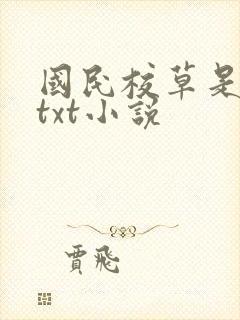 國民校草是
txt小說
賈飛